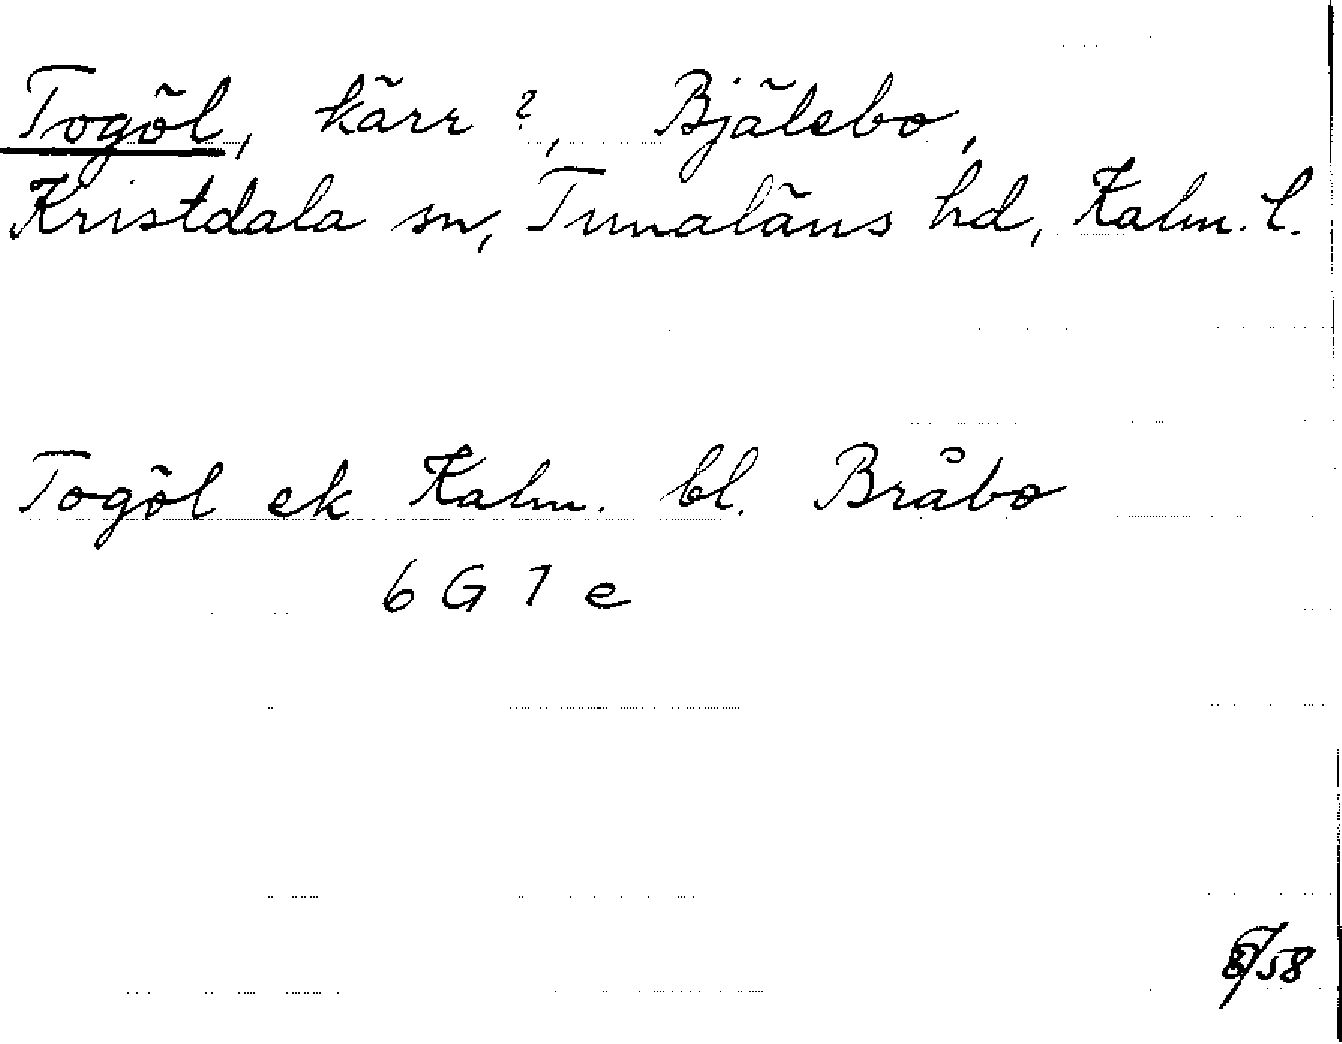 Togöl, kärr ?, Bjälebo,
Kristdala sn, Tunaläns hd, Kalm. l.
Togöl ek Kalm. bl. Bråbo
6 G 7 e
/58